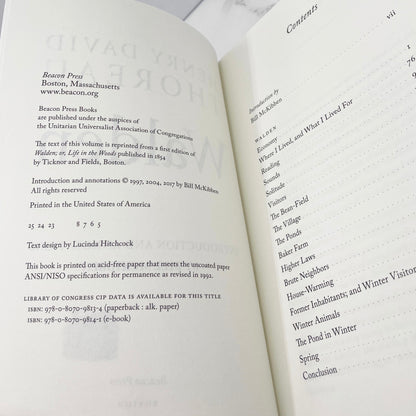 Beacon Press
Boston, Massachusetts
www.beacon.org
Beacon Press Books
are published under the auspices of
the Unitarian Universalist Association of Congregations
The text of this volume is reprinted from a first edition of
Walden; or, Life in the Woods published in 1854
by Ticknor and Fields, Boston.
Introduction and annotations © 1997, 2004, 2017 by Bill McKibben
All rights reserved
Printed in the United States of America
25 24 23 8 7 6 5
Text design by Lucinda Hitchcock
This book is printed on acid-free paper that meets the uncoated paper
ANSI/NISO specifications for permanence as revised in 1992.
LIBRARY OF CONGRESS CIP DATA IS AVAILABLE FOR THIS TITLE
ISBN: 978-0-8070-9813-4 (paperback : alk. paper)
ISBN: 978-0-8070-9814-1 (e-book)
Contents
Introduction by
Bill McKibben
vii
WALDEN
Economy
1
Where I Lived, and What I Lived For
76
Reading
Sounds
Solitude
Visitors
The Bean-Field
The Village
The Ponds
Baker Farm
Higher Laws
Brute Neighbors
House-Warming
Former Inhabitants; and Winter Visitor
Winter Animals
The Pond in Winter
Spring
Conclusion